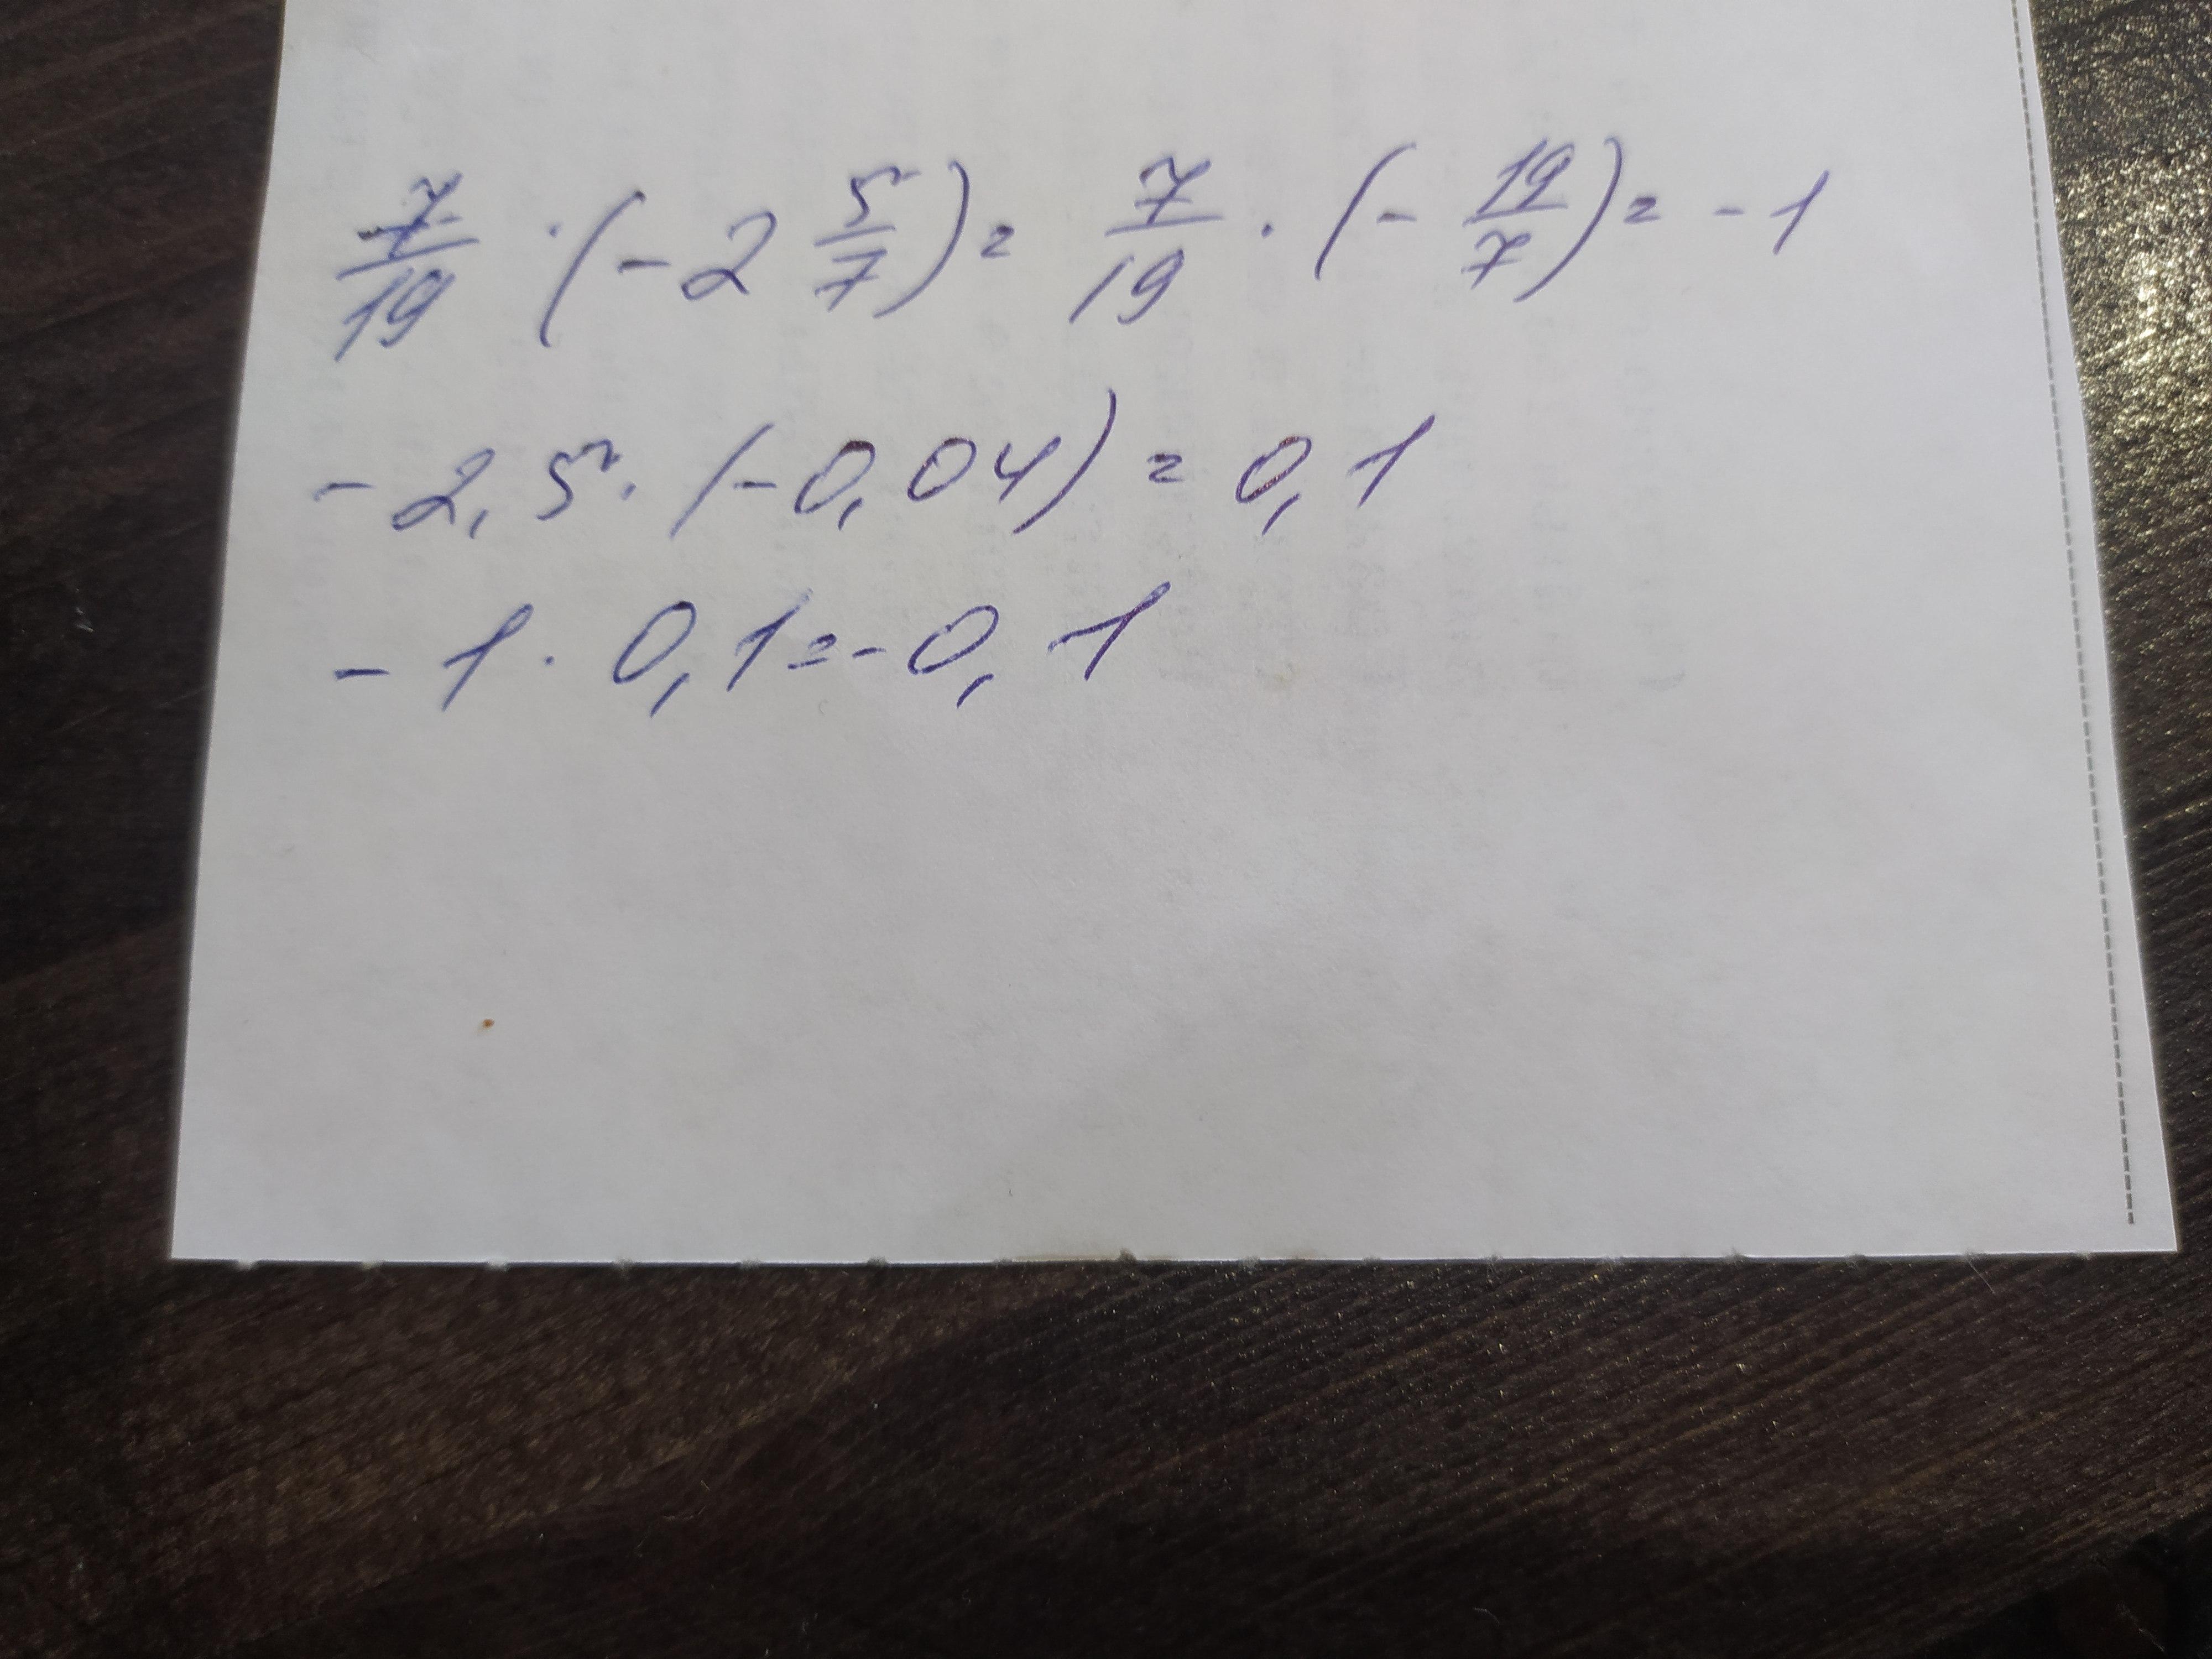 7/19 · (-2 5/7) = 7/19 · (- 19/7) = -1
-2,5 · (-0,04) = 0,1
-1 · 0,1 = -0,1